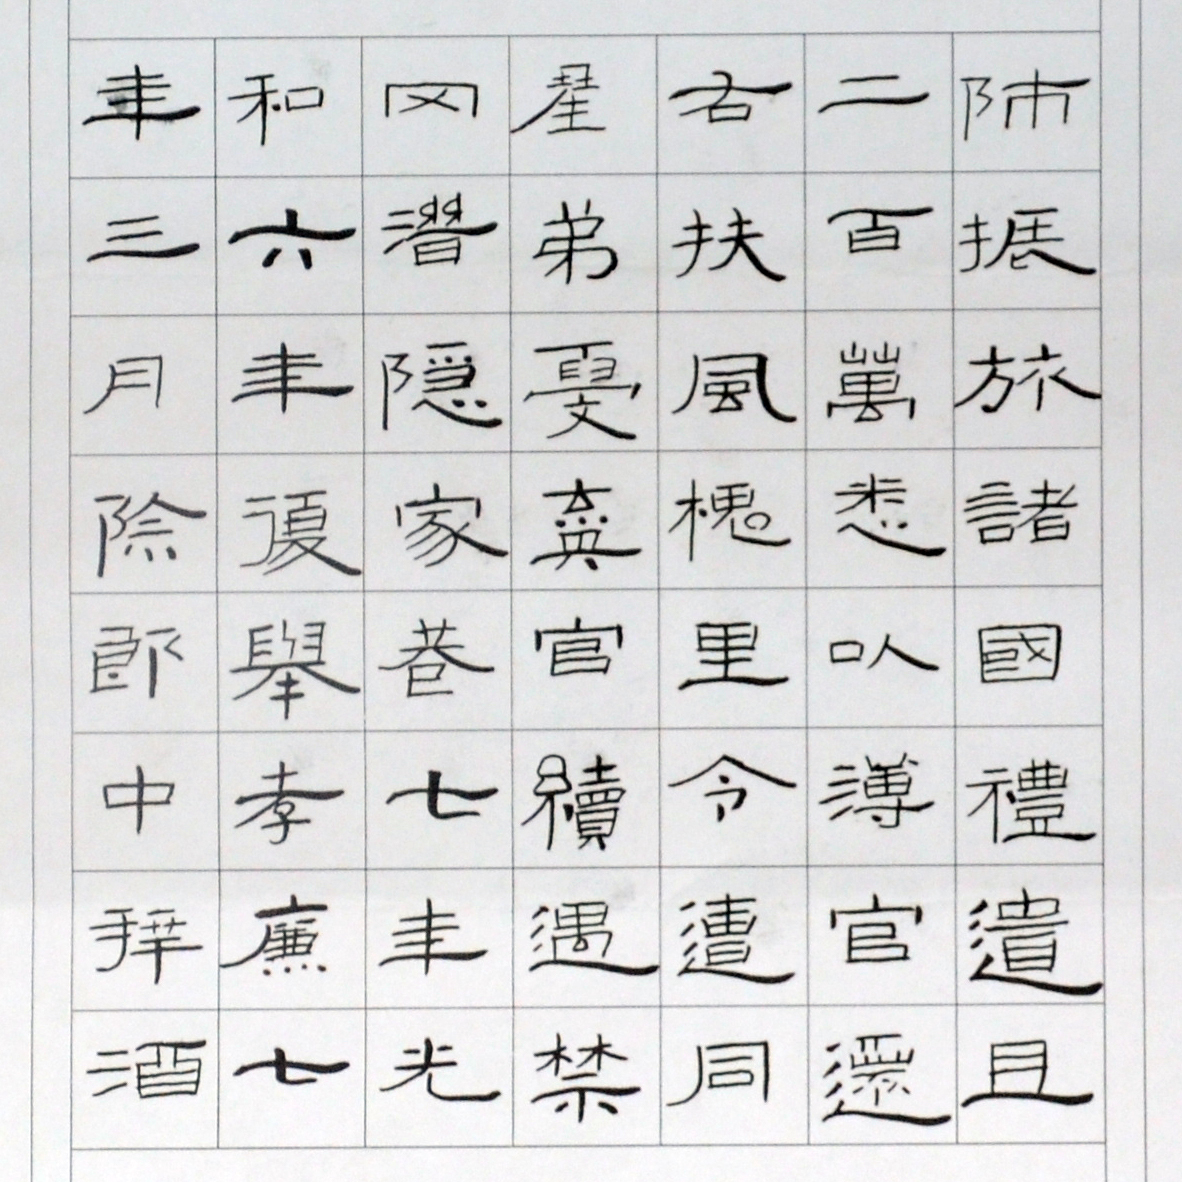 師振旅諸國禮遺且
二百萬悉以薄官還
右扶風槐里令遭同
產弟憂棄官續遇禁
网潛隱家巷七年光
和六年復舉孝廉七
年三月除郎中拜酒